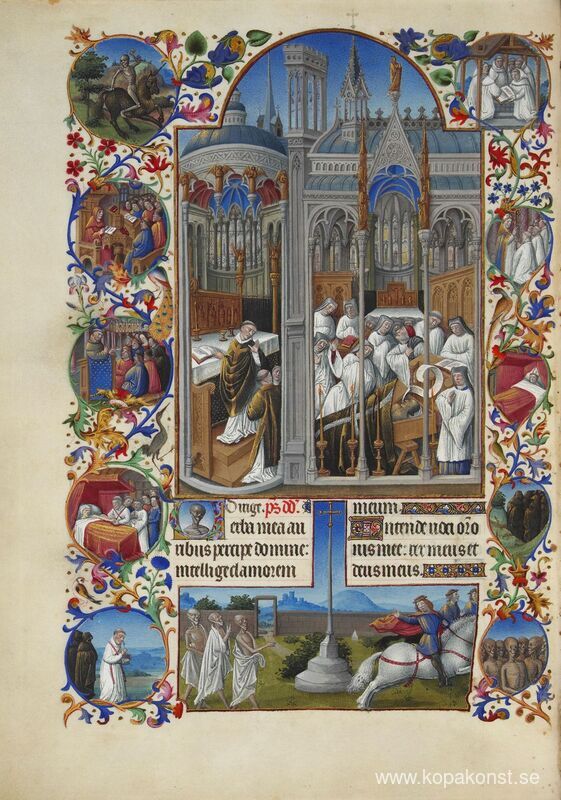 Dirige. ps dd.
Verba mea au
ribus percipe domine:
intellige clamorem
meum.
Intende voci oro
nis mee: rex meus et
deus meus.
www.kopakonst.se